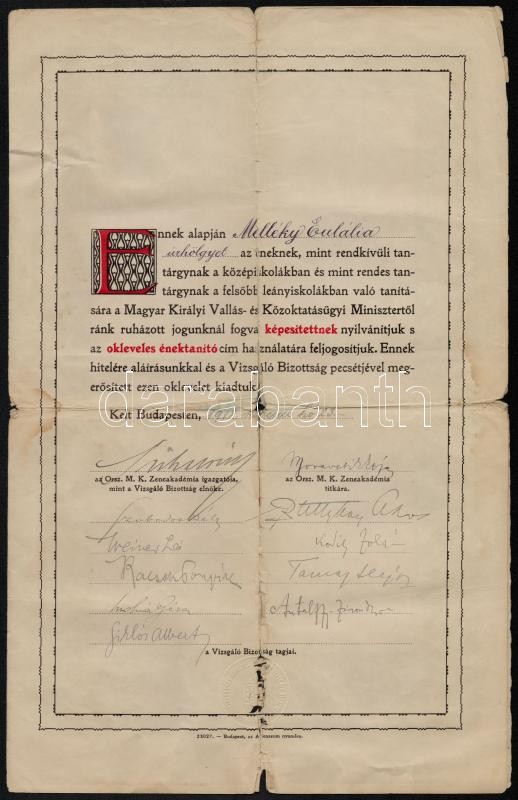 Ennek alapján Melléky Eulália
úrhölgyet az éneknek, mint rendkívüli tan-
tárgynak a középiskolákban és mint rendes tan-
tárgynak a felsőbb leányiskolákban való tanítá-
sára a Magyar Királyi Vallás- és Közoktatásügyi Minisztertől
ránk ruházott jogunknál fogva képesítettnek nyilvánítjuk s
az okleveles énektanító cím használatára feljogosítjuk. Ennek
hitelére aláírásunkkal és a Vizsgáló Bizottság pecsétjével meg-
erősített ezen oklevelet kiadtuk.
darabanth
Kelt Budapesten,
az Orsz. M. K. Zeneakadémia igazgatója,
mint a Vizsgáló Bizottság elnöke.
az Orsz. M. K. Zeneakadémia
titkára.
Weiner Leó
Kodály Zoltán
Siklós Albert
a Vizsgáló Bizottság tagjai.
Budapest, az Athenaeum nyomása.